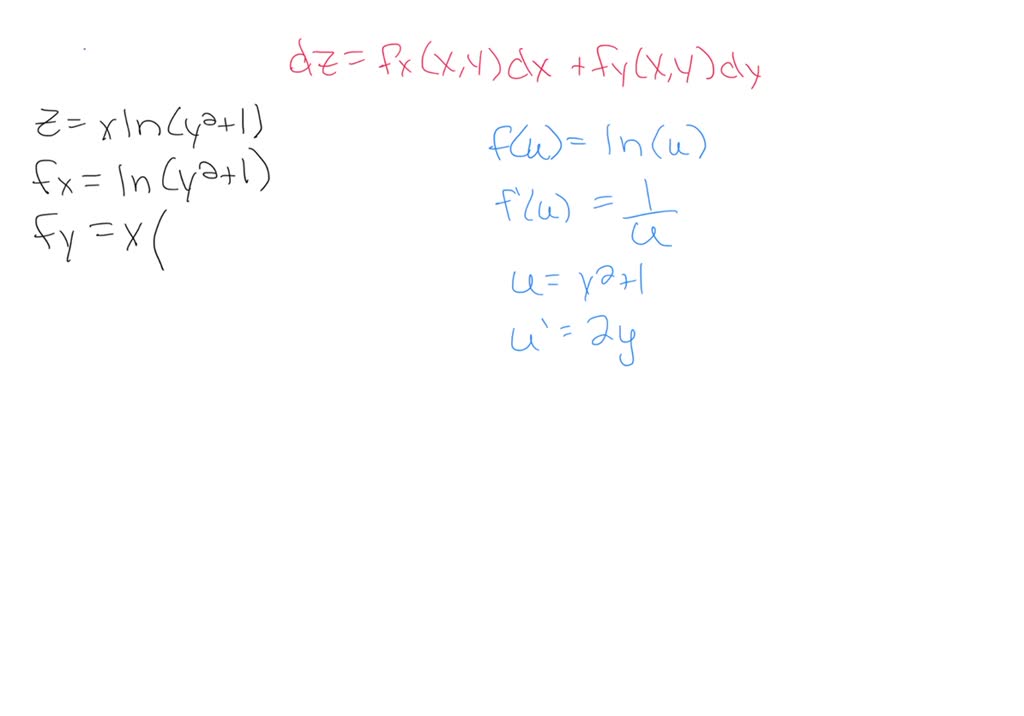 dz = fx(x,y)dx + fy(x,y)dy
z = xln(y²+1)
fx = ln(y²+1)
fy = x(
f(u) = ln(u)
f'(u) = 1/u
u = y²+1
u' = 2y